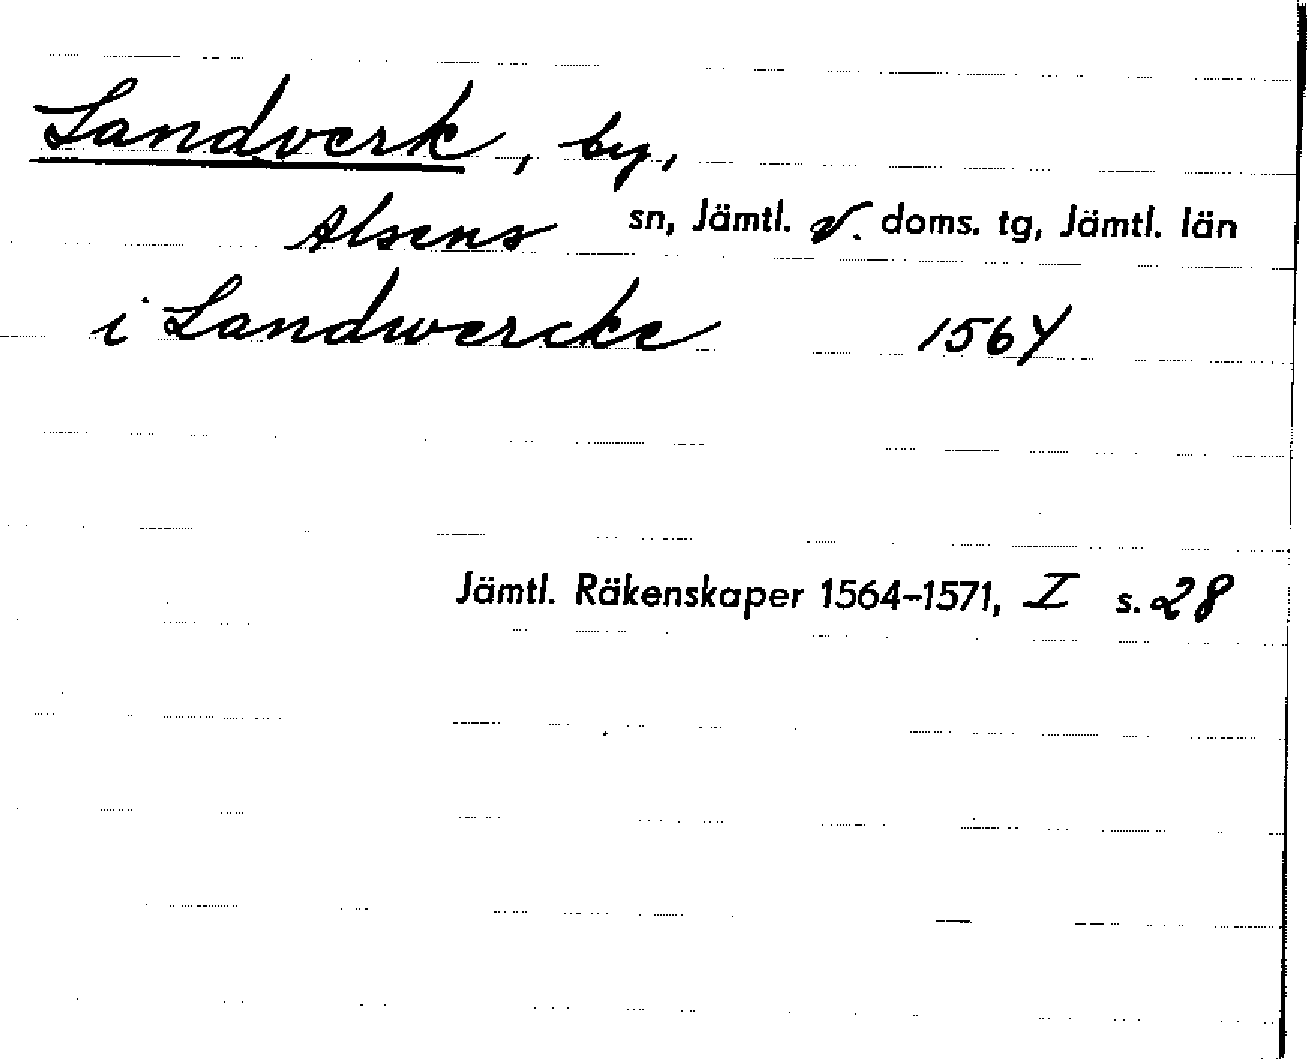 Landverk, by,
Alsens sn, Jämtl. v. doms. tg, Jämtl. län
i Landwercke 1564
Jämtl. Räkenskaper 1564-1571, I s. 28